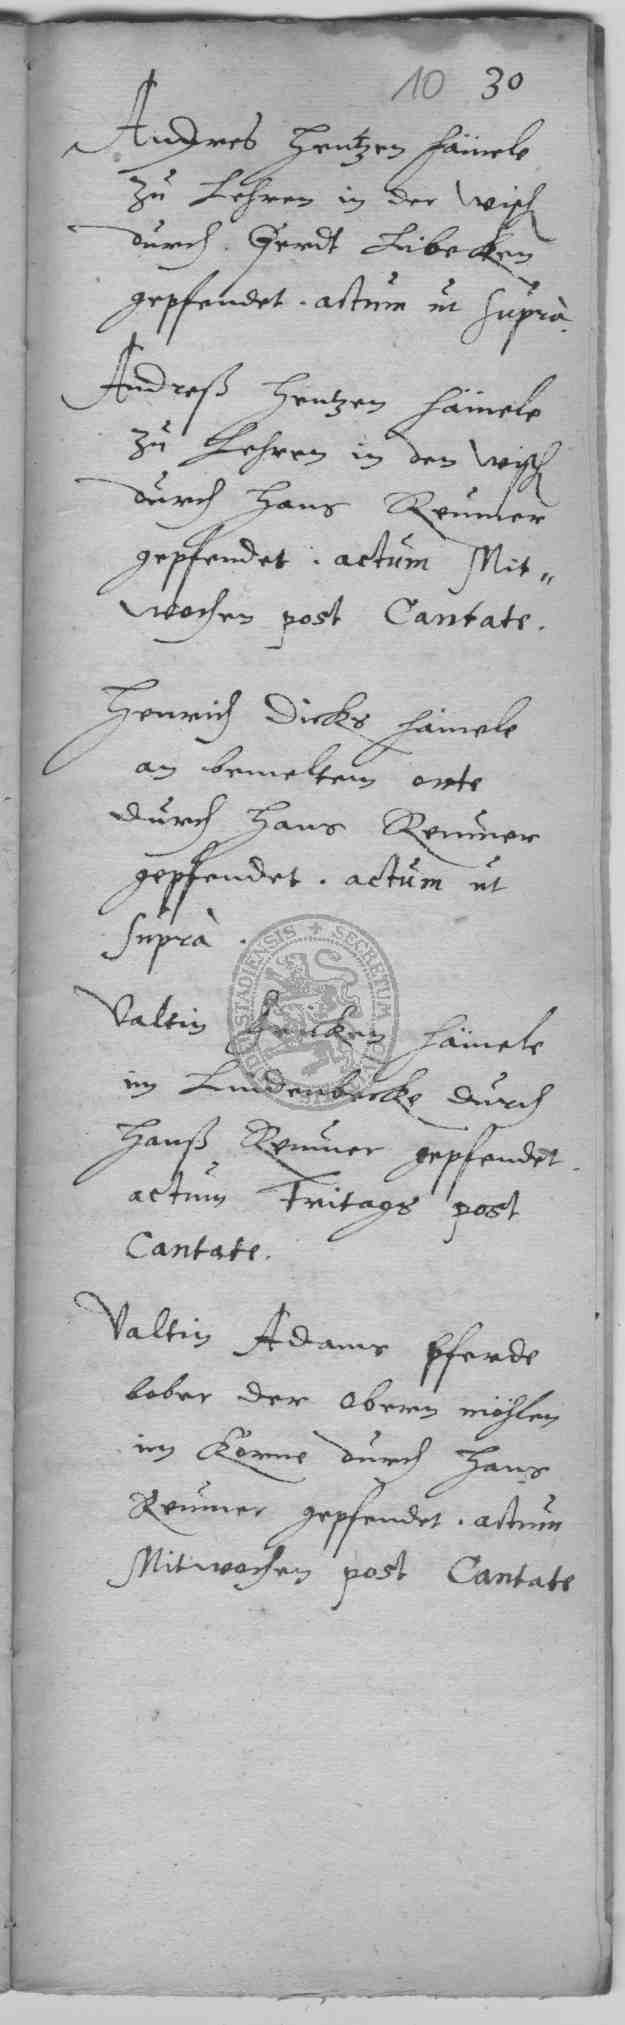 10 30
Andres Hentzen
zu Lehren in der Wisch
durch Gerdt Libecken
gepfendet. actum ut suprà.
Andreß Hentzen
zu Lehren in den Wisch
durch Hans Reumer
gepfendet. actum Mit„
wochen post Cantate.
Henrich Dicks
an bemeltem orte
durch Hans Reumer
gepfendet. actum ut
suprà.
Valtin
im Lindenbecke durch
Hanß Reumer gepfendet.
actum Fritags post
Cantate.
Valtin Adams Pferde
bober der Obern möhlen
im Korne durch Hans
Reumer gepfendet. actum
Mitwochen post Cantate
SECRETUM